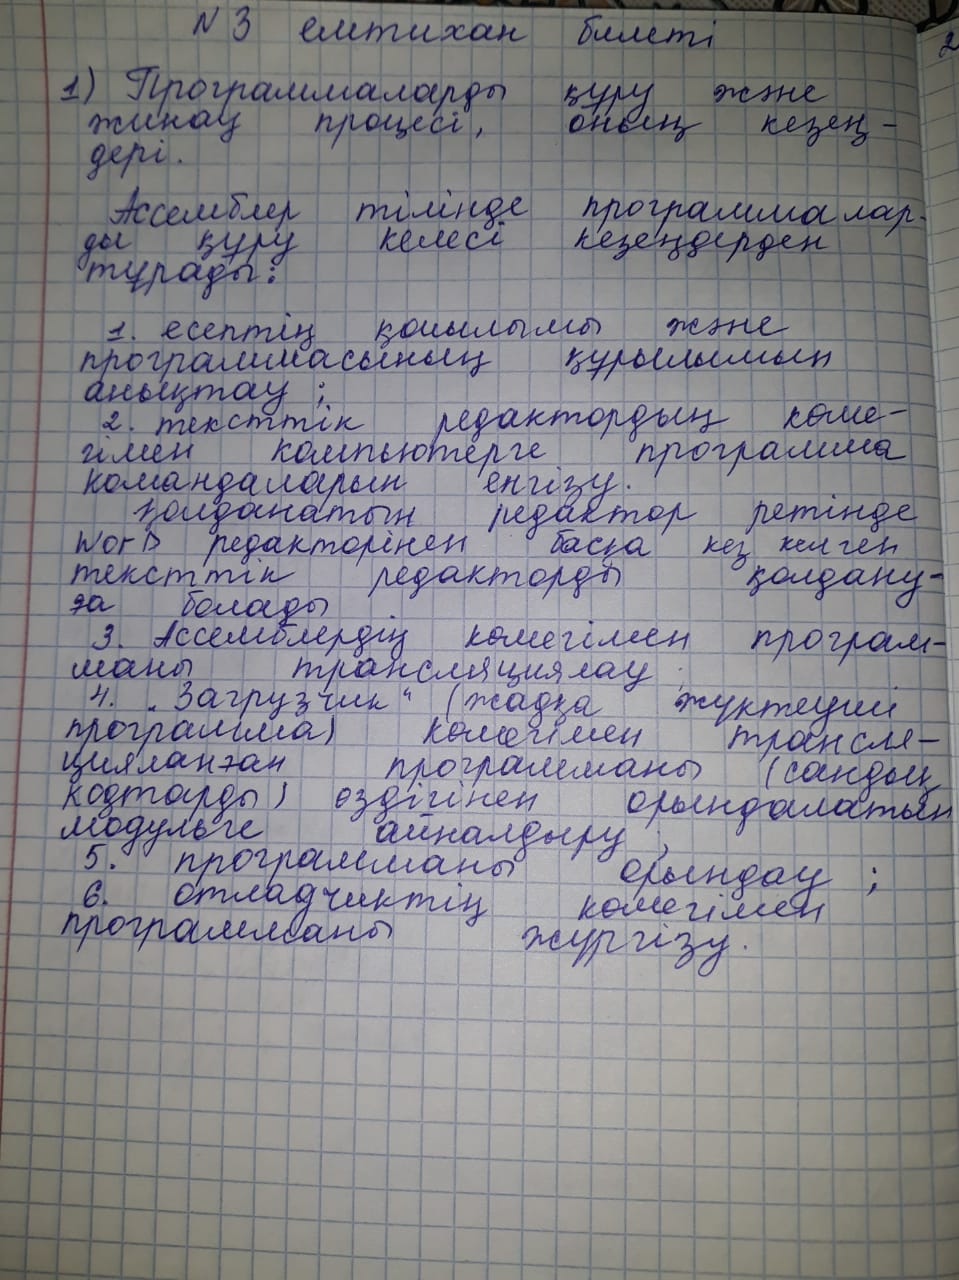 N 3 емтихан билеті
1) Программаларды құру және
жинау процесі, оның кезең-
дері.
Ассемблер тілінде программалар-
ды құру келесі кезеңдерден
тұрады:
1. есептің қойылымы және
программасының құрылымын
анықтау;
2. тексттік редактордың көме-
гімен компьютерге программа
командаларын енгізу.
Қолданатын редактор ретінде
Word редакторінен басқа кез келген
тексттік редакторды қолдану-
ға болады
3. Ассемблердің көмегімен програм-
маны трансляциялау.
4. "Загрузчик" (жадқа жүктеуші
программа) көмегімен трансля-
цияланған программаны (сандық
кодтарды) өздігінен орындалатын
модульге айналдыру;
5. программаны орындау;
6. отладчиктің көмегімен
программаны жүргізу.
2